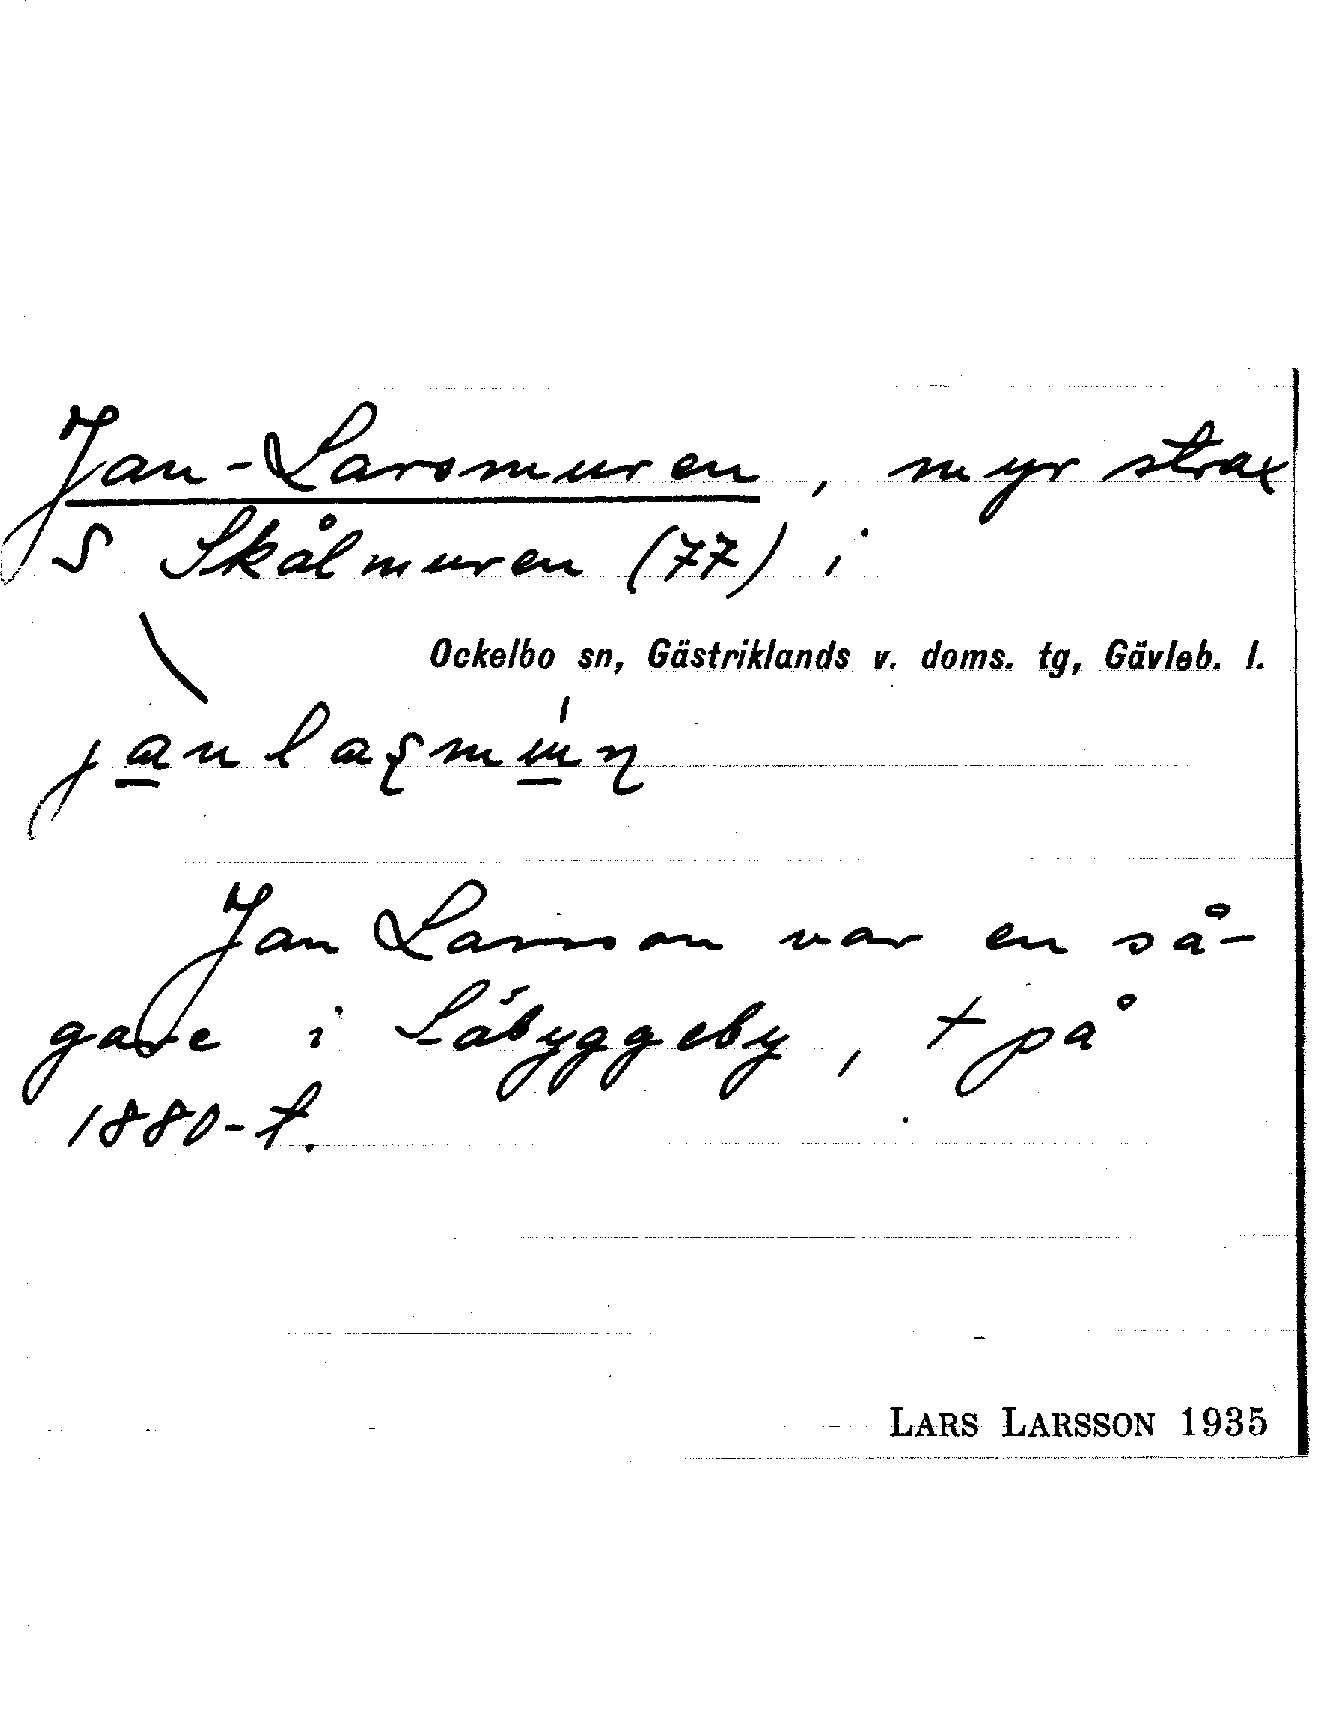 Jan-Larsmuren, myr strax
S Skålmuren (77) i
Ockelbo sn, Gästriklands v. doms. tg, Gävleb. l.
Jan Larsson var en så-
gare i Säbyggeby, + på
1880-t.
LARS LARSSON 1935